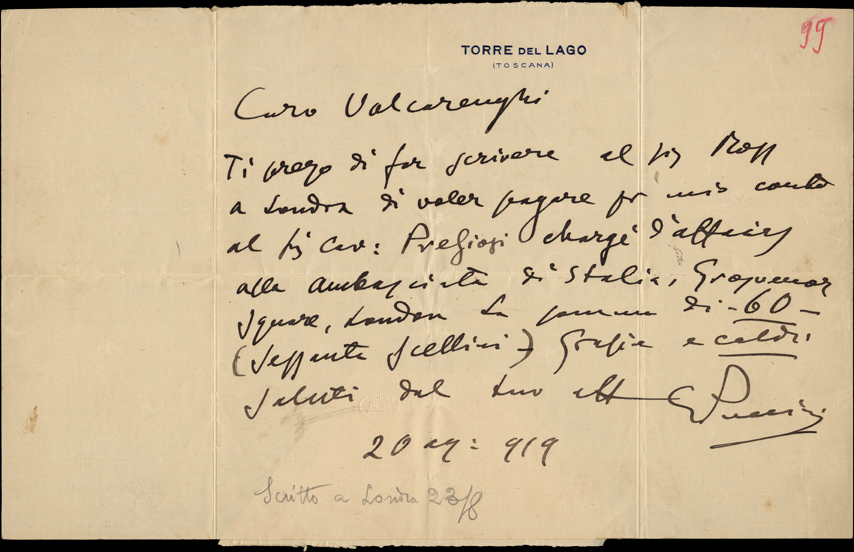 99
TORRE DEL LAGO
(TOSCANA)
Caro Valcarenghi
Ti prego di far scrivere al sig
a Londra di voler pagare pr mio conto
al sig Cav: Preziosi chargé d'affaires
alla ambasciata di Italia, Grosvenor
Square, London la somma di -60-
(sessanta scellini) Grazie e caldi
saluti dal tuo aff GPuccini
20 ag: 919
Scritto a Londra 23/8